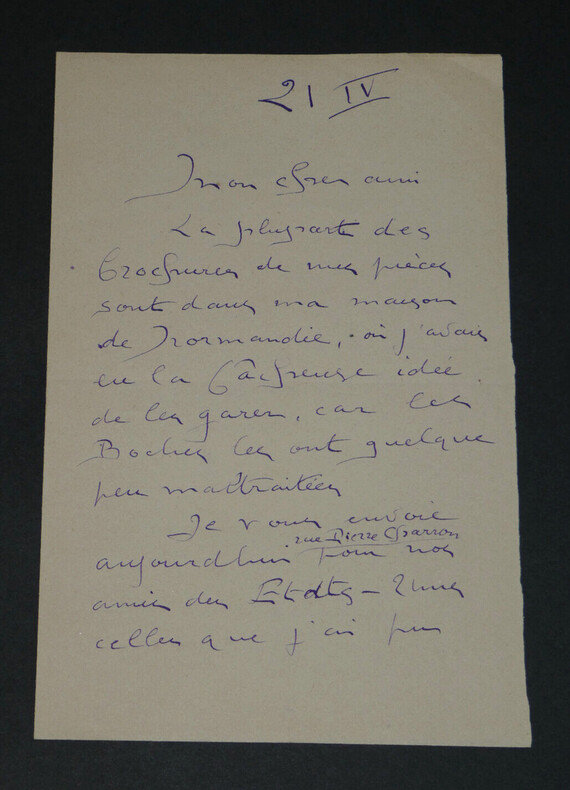 21 IV
Mon cher ami
La plupart des
brochures de mes pièces
sont dans ma maison
de Normandie, où j'avais
eu la fâcheuse idée
de les garer, car les
Boches les ont quelque
peu maltraitées
Je vous envoie
rue Pierre Charron
aujourdhui pour nos
amis des Etats-Unis
celles que j'ai pu